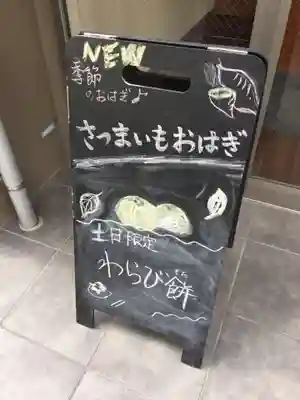 NEW
季節
のおはぎ♪
さつまいもおはぎ
土日限定
わらび餅